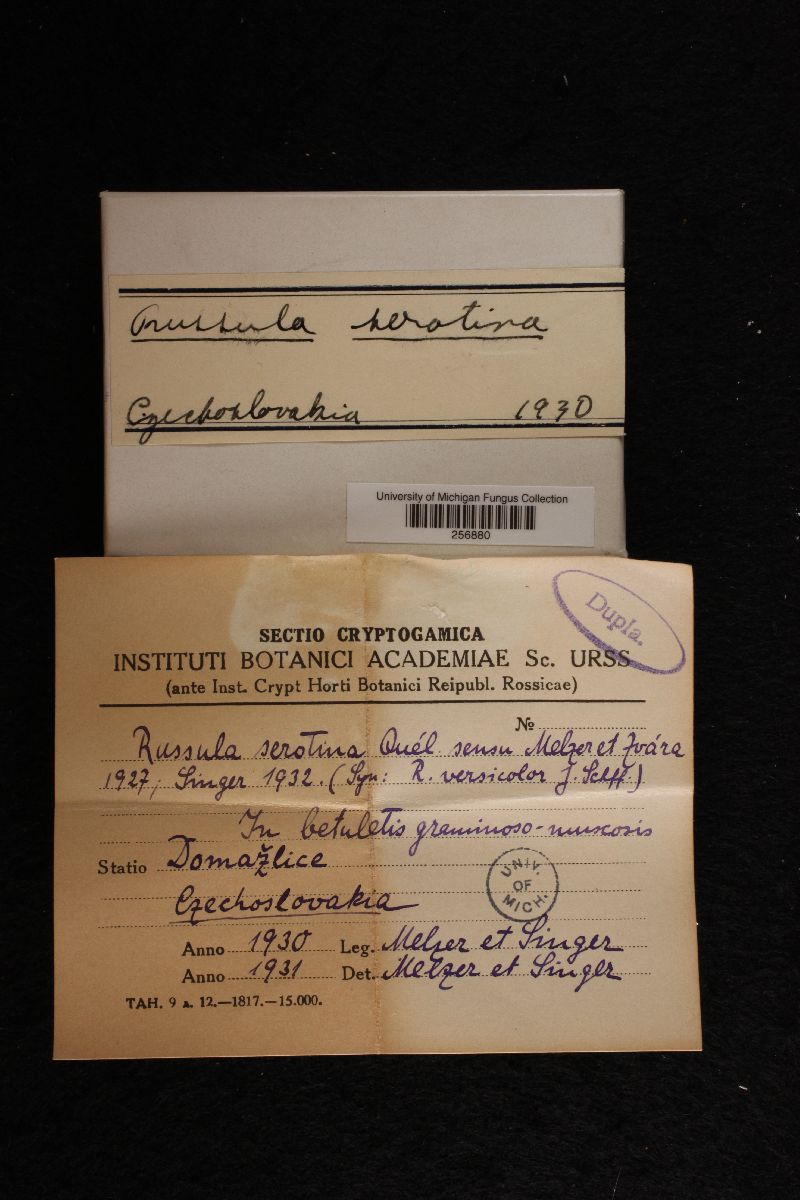 Russula serotina
Czechoslovakia 1930
University of Michigan Fungus Collection
256880
Dupla.
SECTIO CRYPTOGAMICA
INSTITUTI BOTANICI ACADEMIAE Sc. URSS
(ante Inst. Crypt Horti Botanici Reipubl. Rossicae)
№
Russula serotina Quél. sensu Melzer et Zvára
1927, Singer 1932. (Syn: R. versicolor J. Schff)
In betuletis graminoso-muscosis
Statio Domažlice
Czechoslovakia
UNIV. OF MICH.
Anno 1930 Leg. Melzer et Singer
Anno 1931 Det. Melzer et Singer
ТАН. 9 а. 12.—1817.—15.000.